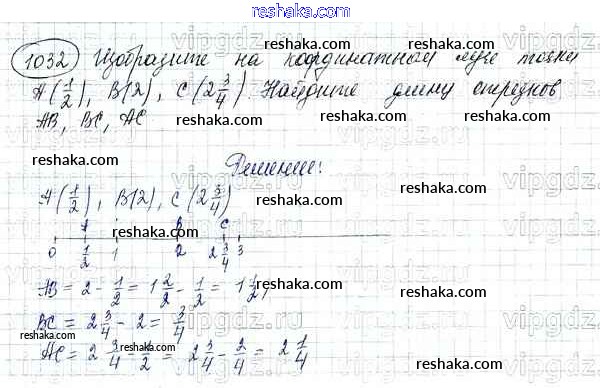 reshaka.com
1032 Изобразите на координатном луче точки
A(1/2), B(2), C(2 3/4). Найдите длину отрезков
AB, BC, AC
Решение:
A(1/2), B(2), C(2 3/4)
A B C
0 1/2 1 2 2 3/4 3
AB = 2 - 1/2 = 1 2/2 - 1/2 = 1 1/2;
BC = 2 3/4 - 2 = 3/4
AC = 2 3/4 - 1/2 = 2 3/4 - 2/4 = 2 1/4